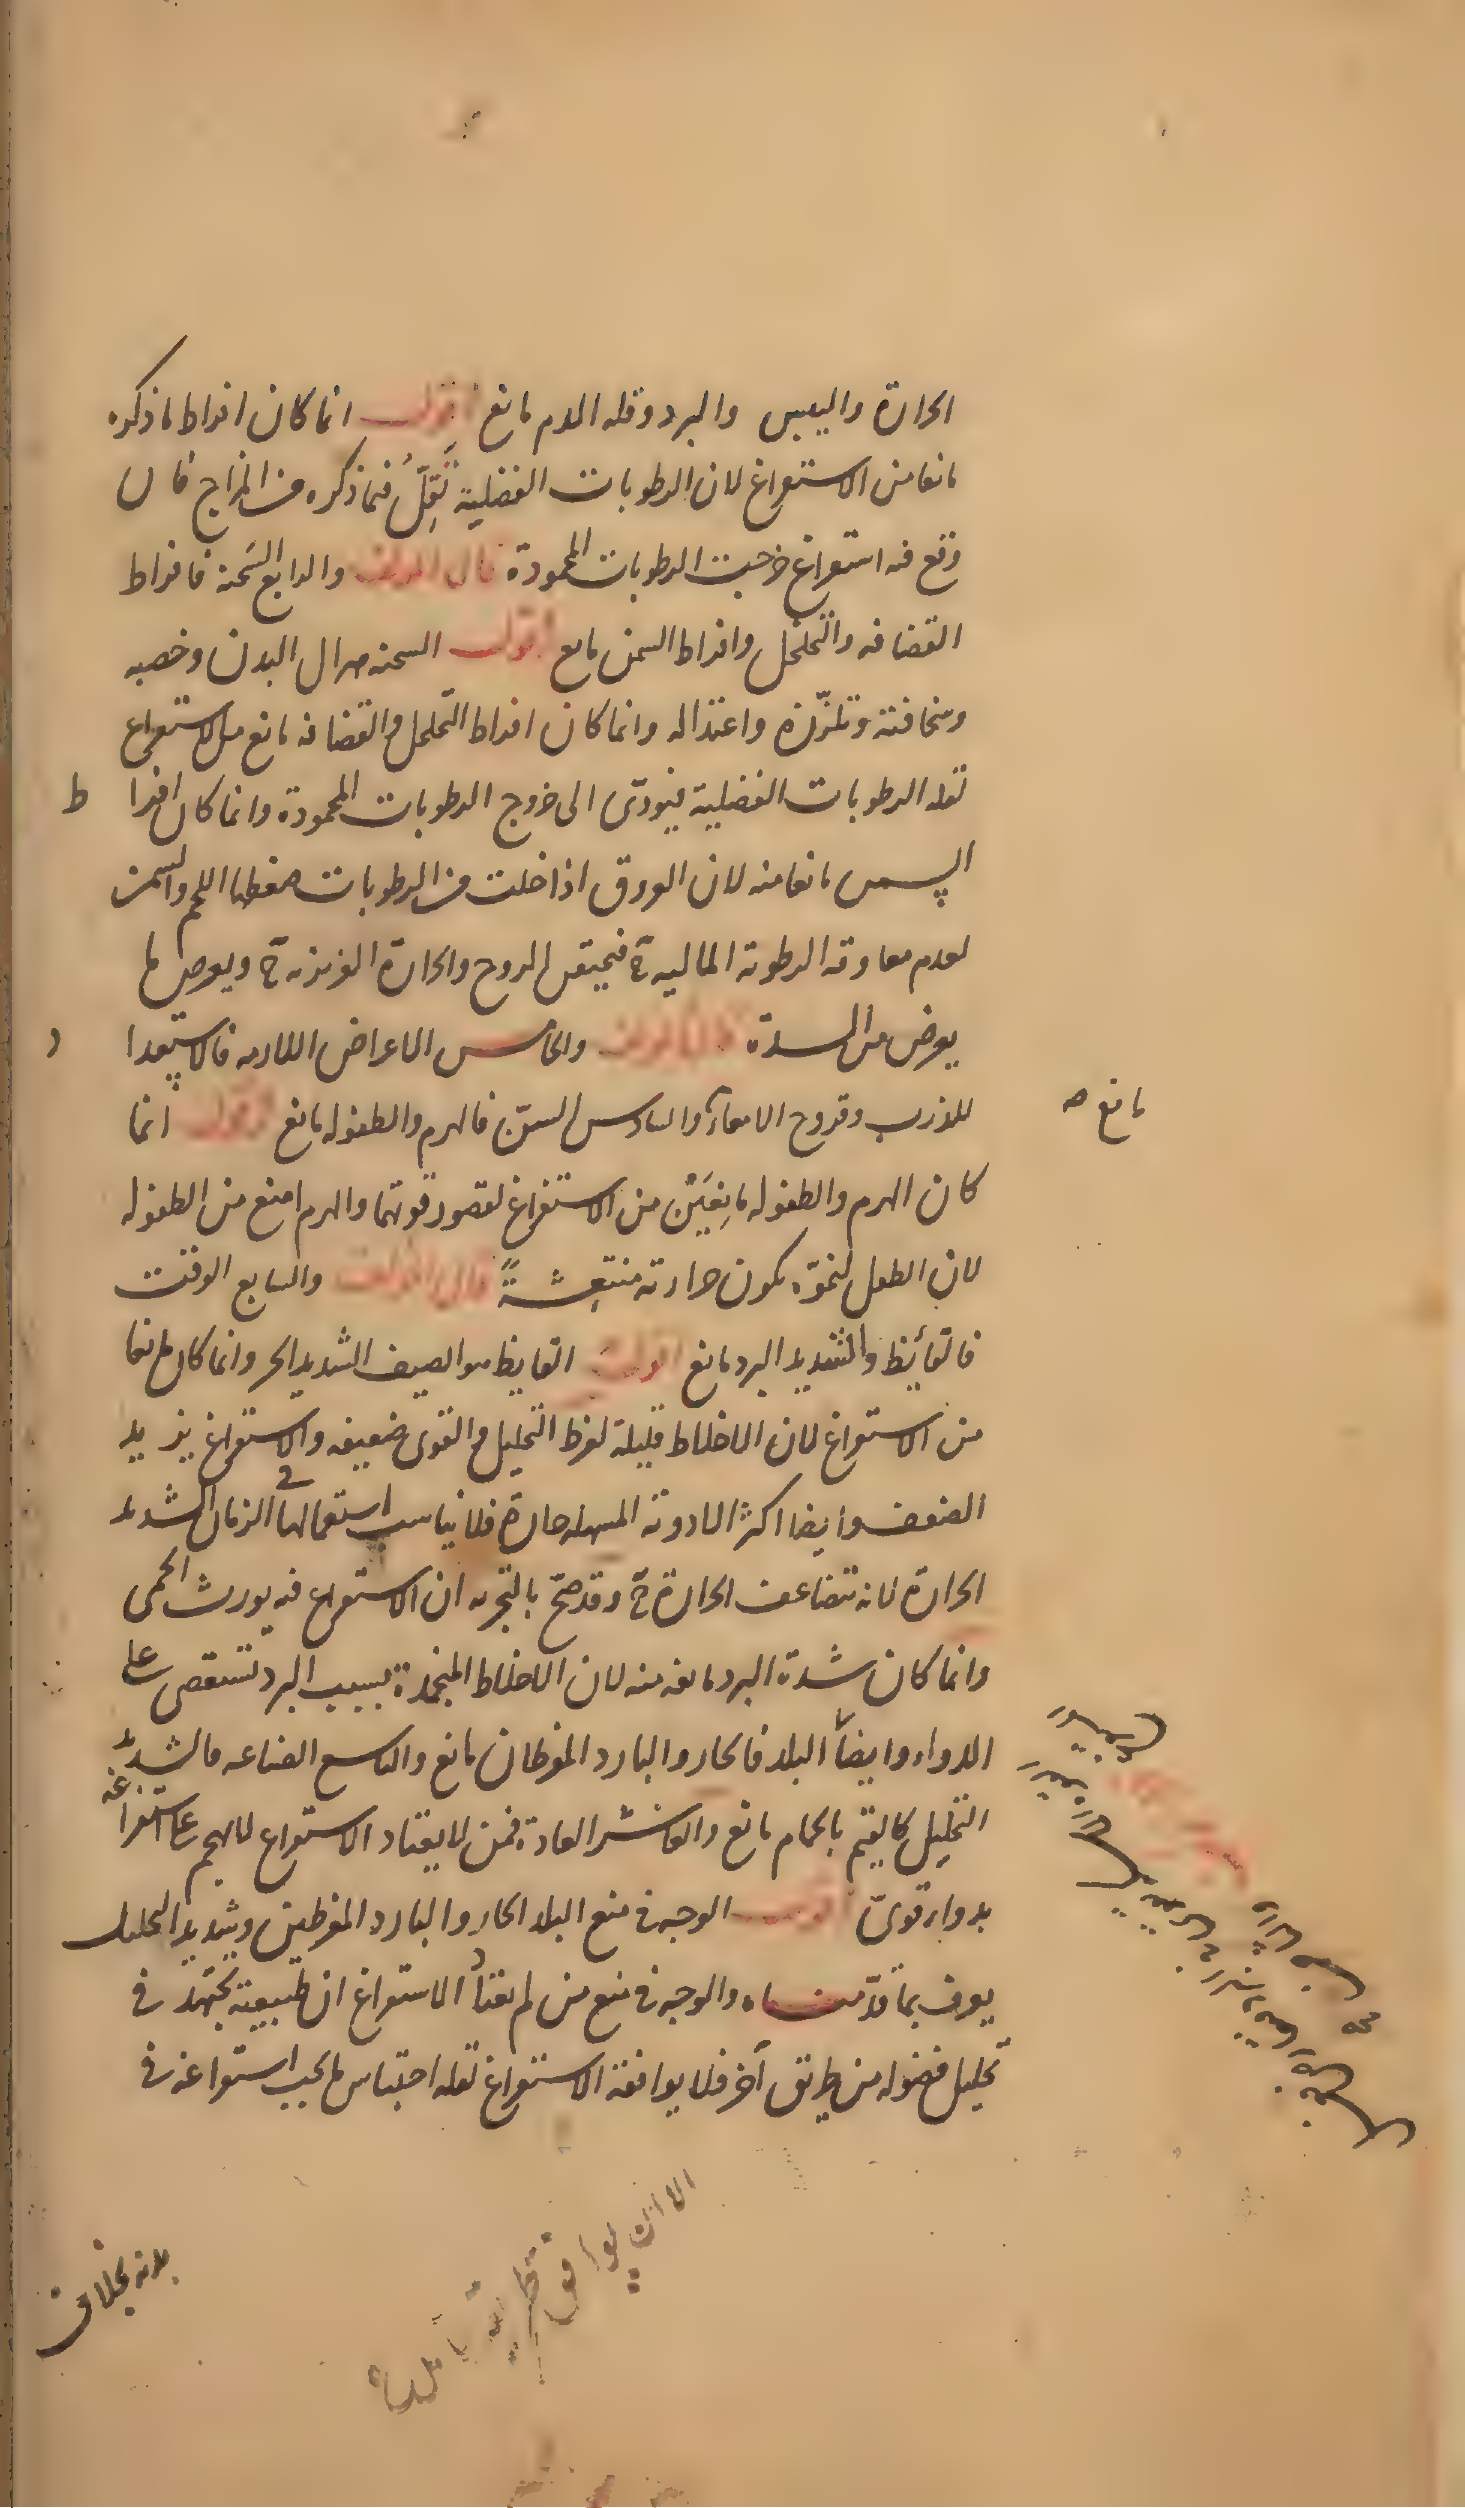 الحارة واليبس والبرد وقله الدم مانع اقول انما كان افراط ما ذكره
مانعا من الاستفراغ لان الرطوبات الفضلية تَقِلُّ فيما ذكره من المزاج فان
وقع فيه استفراغ خرجت الرطوبات المحمودة قال المؤلف والرابع السَحنة فافراط
القضافه والتخلخل وافراط السمن مانع اقول السحنه هزال البدن وخصبه
وسخافته وتلزّزه واعتداله وانما كان افراط التخلخل والقضافه مانع من الاستفراغ
لقله الرطوبات الفضلية فيودّى الى خروج الرطوبات المحمودة وانما كان افرا ط
السمن مانعا منه لان العروق اذا خلت من الرطوبات ضغطها اللحم والسمن
لعدم معاوقه الرطوبة المالية ح فيختنق الروح والحارة الغريزيه ح ويعرض ما
يعرض من السدة قال المؤلف والخامس الاعراض اللازمه فالاستعدا د
للذرب وقروح الامعآء والسادس السنّ فالهرم والطفوله مانع اقول انما
مانع صه
كان الهرم والطفوله مانِعَيْن من الاستفراغ لقصور قوتهما والهرم امنع من الطفوله
لان الطفل لنموّه يكون حرارته منتعِشةً قال المؤلف والسابع الوقت
فالقآئظ والشديد البرد مانع اقول القايظ هو الصيف الشديد الحر وانما كان مانعا
من الاستفراغ لان الاخلاط قليلة لفرط التحليل والقوى ضعيفه والاستفراغ يزيد
الضعف وايضا اكثر الادوية المسهله حارة فلا يناسب استعمالها في الزمان الشديد
الحارة لانه تتضاعف الحارة ح وقد صحّ بالتجربه ان الاستفراغ فيه يورث الحمى
وانما كان شدة البرد مانعه منه لان الاخلاط المنجمدة بسبب البرد تستعصى على
الدواء وايضاً البلد فالحار والبارد المفرطان مانع والتاسع الصناعه فالشديد
التحليل كالقيّم بالحمام مانع والعاشر العادة فمن لا يعتاد الاستفراغ لا يهجم على استفراغه
بدواء قوىّ اقول الوجه في منع البلد الحار والبارد المفرطين وشديد التحليل
يعرف بما قدّمناه والوجه في منع من لم يعتد الاستفراغ ان طبيعته تجتهد في
تحليل فضوله من طريق آخر فلا يوافقه الاستفراغ لقله احتباس ما يجب استفراغه في
بدنه بخلاف